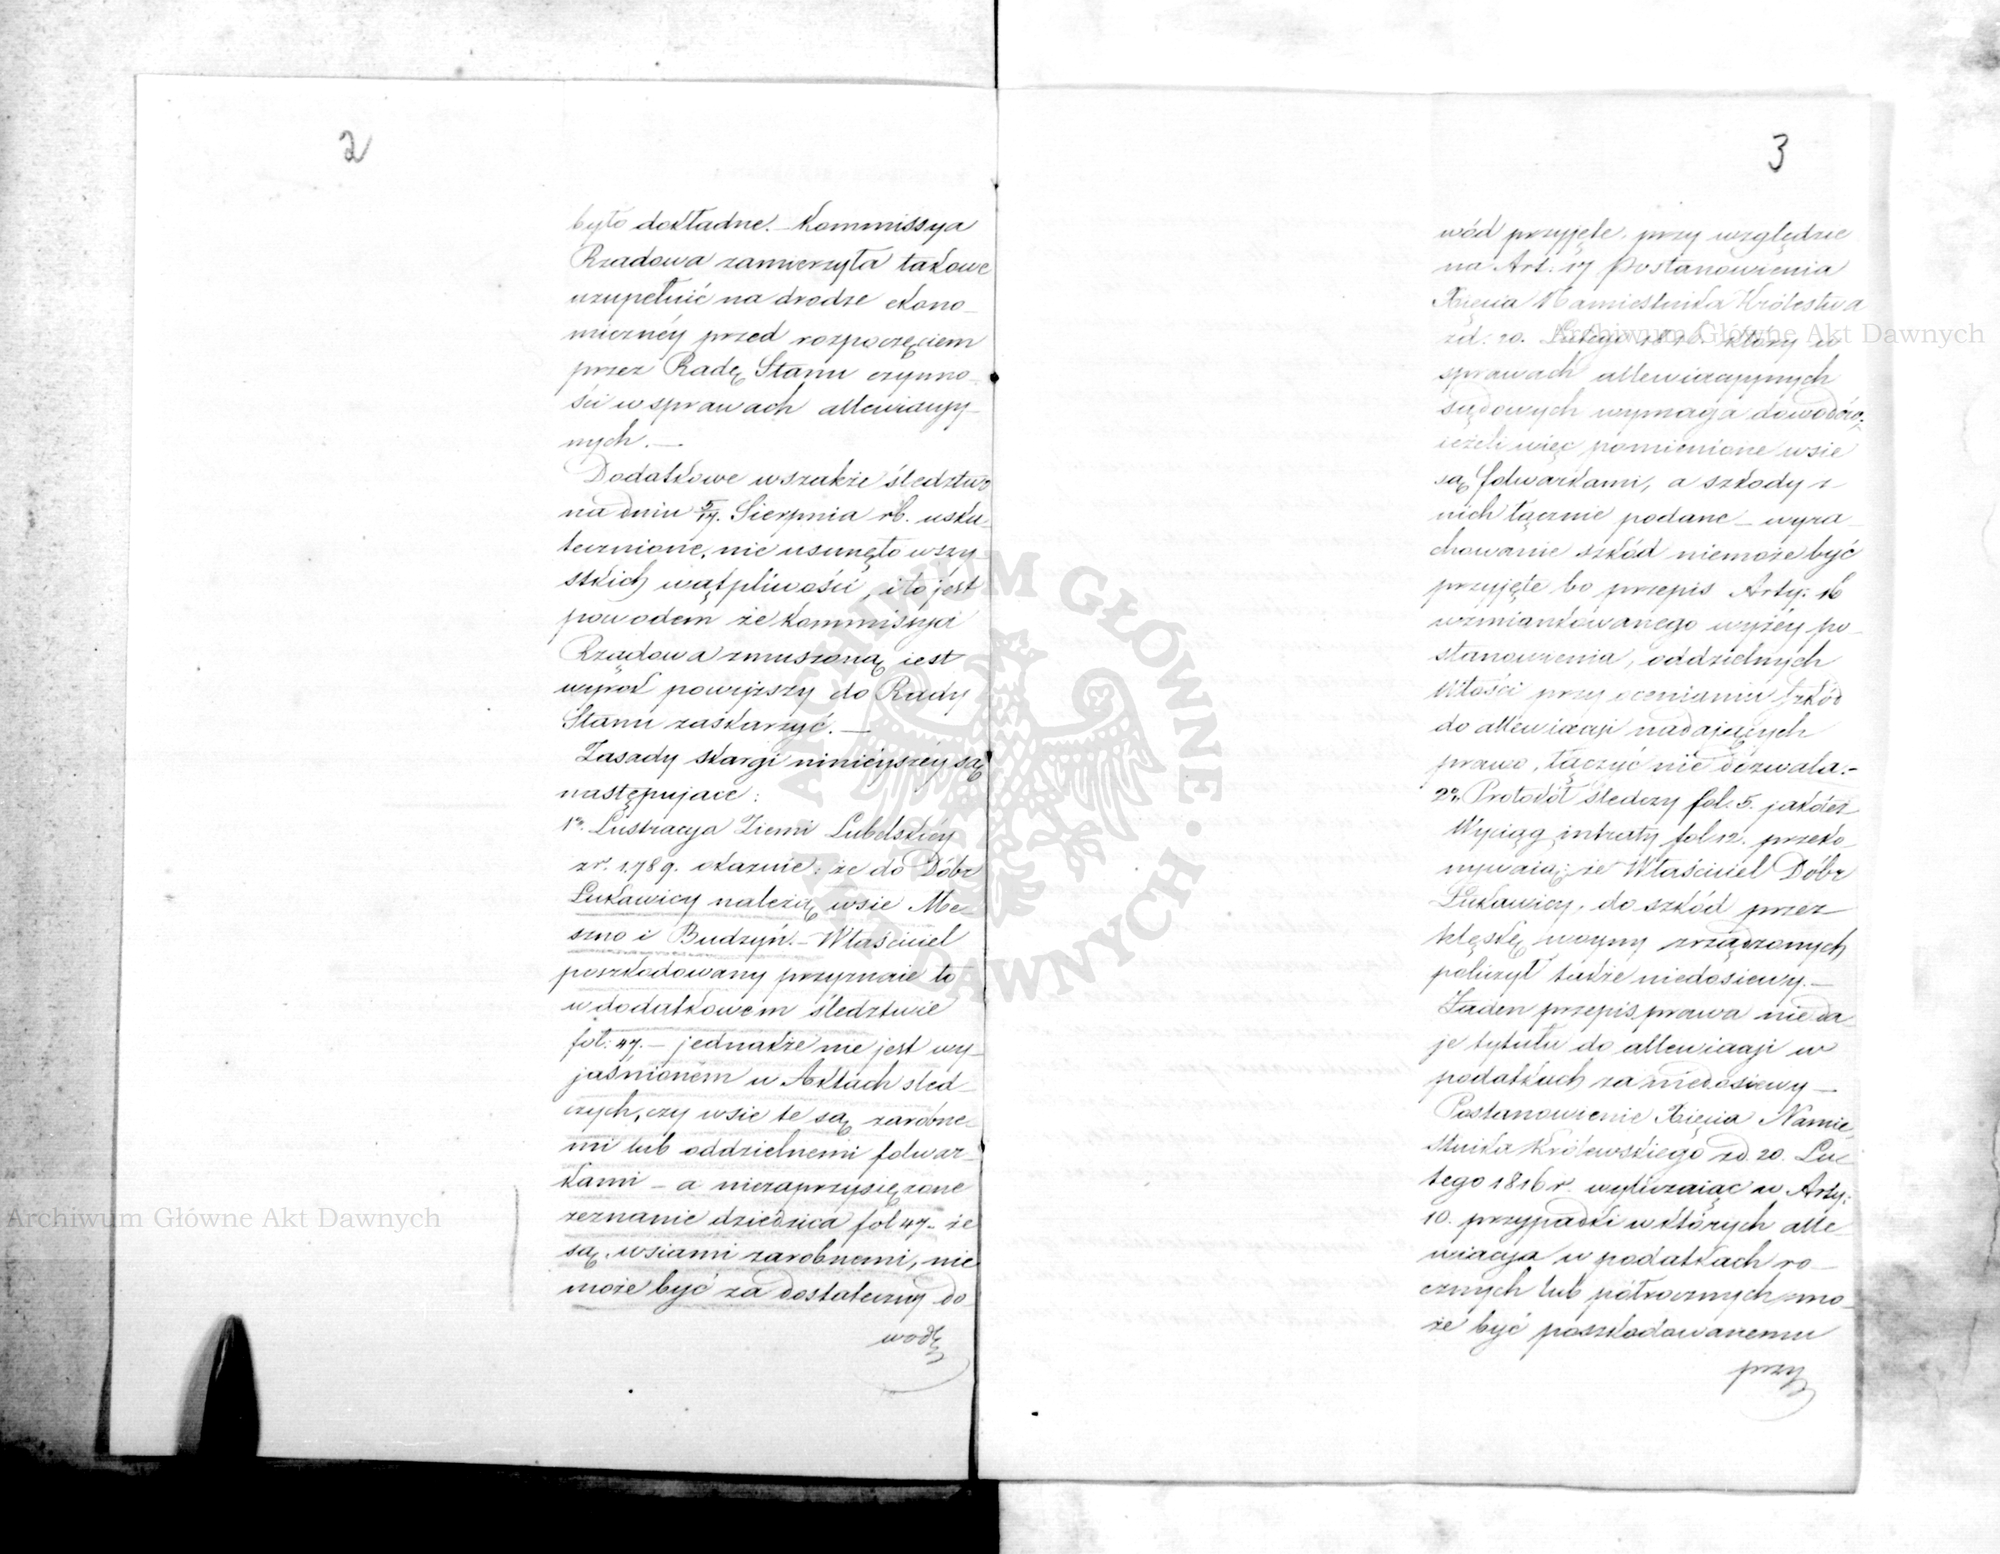 2
było dokładne. Kommissya
Rządowa zamierzyła takowe
uzupełnić na drodze ekono-
miczney przed rozpoczęciem
przez Radę Stanu czynno-
ści w sprawach allewiacyy-
nych.—
Dodatkowe wszakże śledztwo
na dniu 5/17. Sierpnia rb. usku-
tecznione, nie usunęło wszy-
stkich wątpliwości, i to jest
powodem że Kommissyja
Rządowa zmuszoną iest
wyrok powyższy do Rady
Stanu zaskarzyć.—
Zasady skargi ninieyszey są
następujące:
1o. Lustracya Ziemi Lubelskiey
z r. 1789. okazuie: że do Dóbr
Łukawicy należą wsie Me-
szno i Budzyń.— Właściciel
poszkodowany przyznaie to
w dodatkowem śledztwie
fol: 47.— jednakże nie jest wy-
jaśnionem w Aktach śled-
czych, czy wsie te są zarobne-
mi lub oddzielnemi folwar-
kami — a niezaprzysiężone
zeznanie dziedzica fol 47. że
są wsiami zarobnemi, nie
może być za dostateczny do-
wód
3
wód przyjęte, przy względzie
na Art: 17 Postanowienia
Xięcia Namiestnika Królestwa
z d: 20. Lutego 1816. który w
sprawach allewiacyynych
sądowych wymaga dowodów,
ieżeli więc pomienione wsie
są folwarkami, a szkody z
nich łącznie podane — wyra-
chowanie szkód niemoże być
przyjęte bo przepis Arty: 16
wzmiankowanego wyżey po-
stanowienia, oddzielnych
Włości przy ocenianiu szkód
do allewiacyi nadających
prawo, łączyć nie dozwala.—
2o. Protokół śledczy fol. 5. jakoteż
Wyciąg intraty fol 12. przeko-
nywaią: że Właściciel Dóbr
Łukawicy, do szkód przez
klęskę woyny zrządzonych
policzył także niedosiewy.—
Żaden przepis prawa nie da-
je tytułu do allewiacyi w
podatkach za niedosiewy —
Postanowienie Xięcia Namie-
stnika Królewskiego z d. 20. Lu-
tego 1816 r. wyliczaiąc w Arty:
10. przypadki w których alle-
wiacyja w podatkach ro-
cznych lub półrocznych mo-
że być poszkodowanemu
przy
Archiwum Główne Akt Dawnych
Archiwum Główne Akt Dawnych
ARCHIWUM GŁÓWNE AKT DAWNYCH